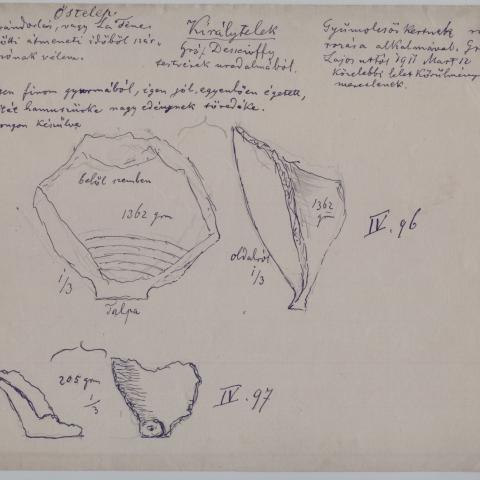 Őstelep.
vándorlás, vagy La Tène
átmeneti időből szár-
vélem.
Királytelek
Gróf Dessewffy
testvérek uradalmából.
Gyümölcsös kertnek
alkalmával. Gr.
Lajostól 1911 Mart 12
Közelebbi lelet körülmény
finom gyurmából, igen jól, egyenlően égetett,
hamuszürke nagy edénynek töredéke.
korongon készülve
belől szemben
1362 grm
1/3
Talpa
oldalról
1/3
1362
grm
IV. 96
205 grm
1/3
IV. 97